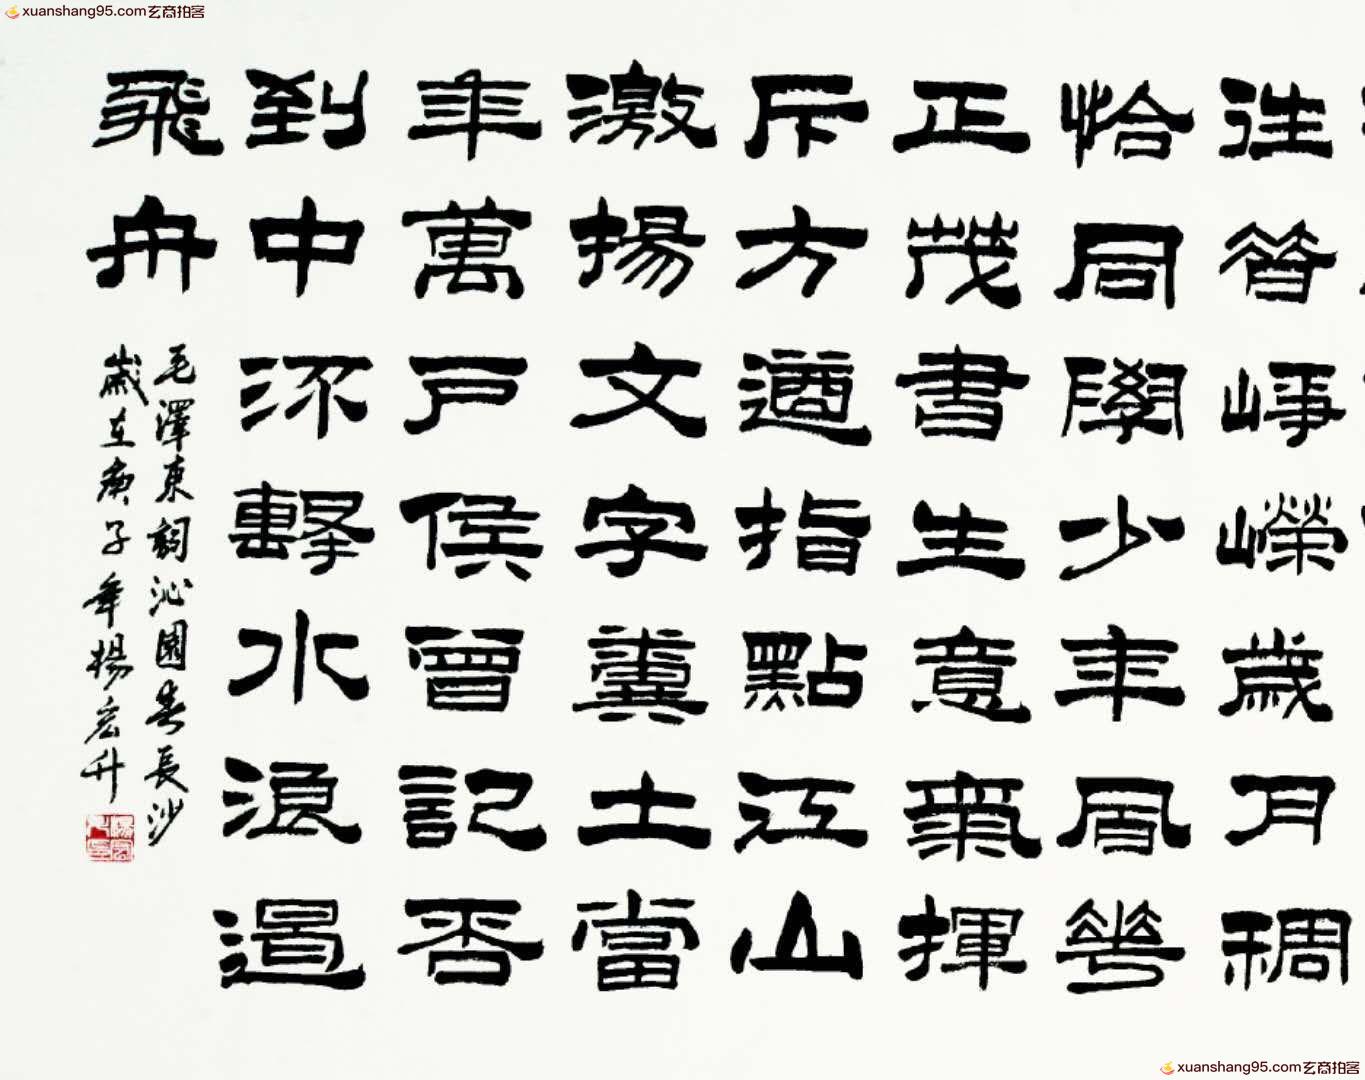 xuanshang95.com玄商拍客
往昔崢嶸歲月稠
恰同學少年風華
正茂書生意氣揮
斥方遒指點江山
激揚文字糞土當
年萬戶侯曾記否
到中流擊水浪遏
飛舟
毛澤東詞沁園春長沙
歲在庚子年楊宏升
xuanshang95.com玄商拍客